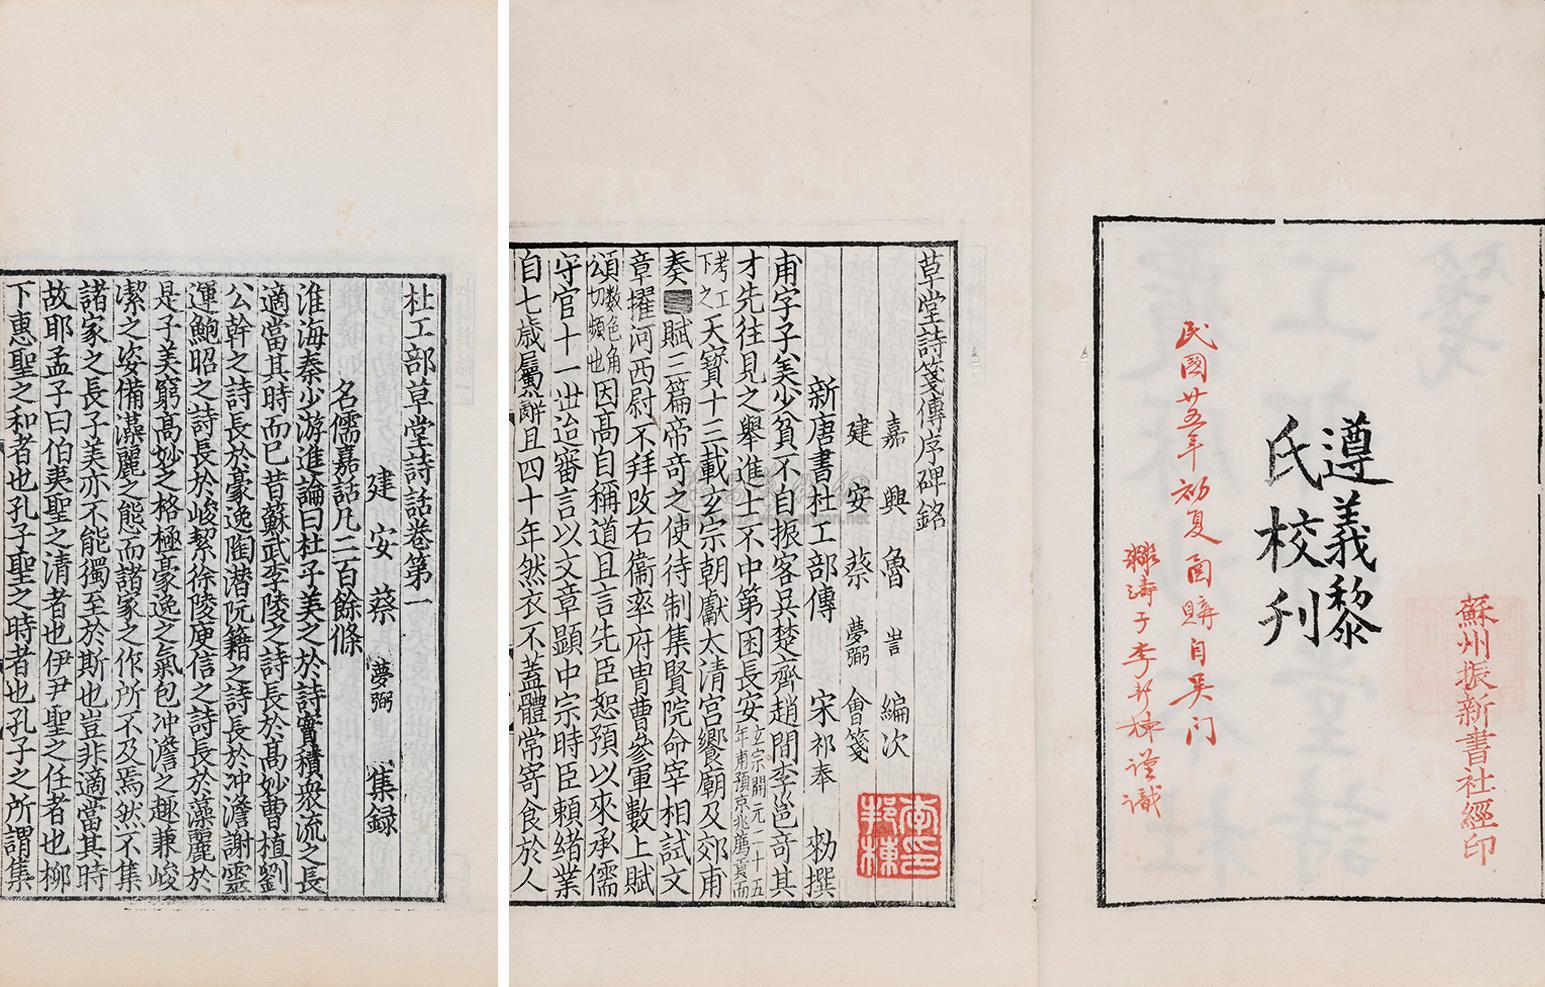 遵義黎
氏校刊
蘇州振新書社經印
民國廿五年初夏同購自吴门
李邦棟謹識
草堂詩箋傳序碑銘
嘉興魯訔編次
建安蔡夢弼會箋
新唐書杜工部傳 宋祁奉 勑撰
甫字子美少貧不自振客吳楚齊趙間李邕奇其
才先往見之舉進士不中第困長安玄宗開元二十五年甫預京兆薦貢而
考工下之天寶十三載玄宗朝獻太清宮饗廟及郊甫
奏賦三篇帝奇之使待制集賢院命宰相試文
章擢河西尉不拜改右衞率府冑曹參軍數上賦
頌數色角切頻也因高自稱道且言先臣恕預以來承儒
守官十一世迨審言以文章顯中宗時臣賴緒業
自七歲屬辭且四十年然衣不蓋體常寄食於人
李邦棟印
杜工部草堂詩話卷第一
建安蔡夢弼集録
名儒嘉話凡二百餘條
淮海秦少游進論曰杜子美之於詩實積衆流之長
適當其時而已昔蘇武李陵之詩長於高妙曹植劉
公幹之詩長於豪逸陶潛阮籍之詩長於冲澹謝靈
運鮑昭之詩長於峻潔徐陵庾信之詩長於藻麗於
是子美窮高妙之格極豪逸之氣包冲澹之趣兼峻
潔之姿備藻麗之態而諸家之作所不及焉然不集
諸家之長子美亦不能獨至於斯也豈非適當其時
故耶孟子曰伯夷聖之清者也伊尹聖之任者也柳
下惠聖之和者也孔子聖之時者也孔子之所謂集